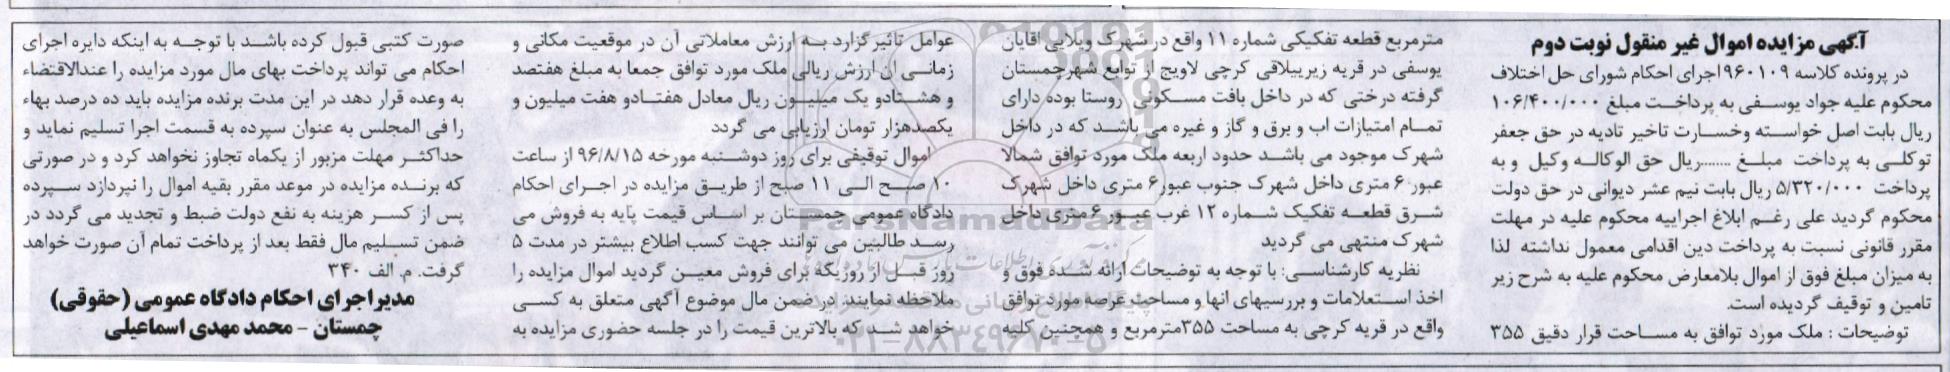 آگهی مزایده اموال غیر منقول نوبت دوم
در پرونده کلاسه ۹۶۰۱۰۹ اجرای احکام شورای حل اختلاف
محکوم علیه جواد یوسفی به پرداخت مبلغ ۱۰۶/۴۰۰/۰۰۰
ریال بابت اصل خواسته وخسارت تاخیر تادیه در حق جعفر
توکلی به پرداخت مبلغ .......ریال حق الوکاله وکیل و به
پرداخت ۵/۳۲۰/۰۰۰ ریال بابت نیم عشر دیوانی در حق دولت
محکوم گردید علی رغم ابلاغ اجراییه محکوم علیه در مهلت
مقرر قانونی نسبت به پرداخت دین اقدامی معمول نداشته لذا
به میزان مبلغ فوق از اموال بلامعارض محکوم علیه به شرح زیر
تامین و توقیف گردیده است.
توضیحات : ملک مورد توافق به مساحت قرار دقیق ۳۵۵
مترمربع قطعه تفکیکی شماره ۱۱ واقع در شهرک ویلایی اقایان
یوسفی در قریه زیرییلاقی کرچی لاویج از توابع شهرچمستان
گرفته درختی که در داخل بافت مسکونی روستا بوده دارای
تمام امتیازات اب و برق و گاز و غیره می باشد که در داخل
شهرک موجود می باشد حدود اربعه ملک مورد توافق شمالا
عبور ۶ متری داخل شهرک جنوب عبور۶ متری داخل شهرک
شرق قطعه تفکیک شماره ۱۲ غرب عبور ۶ متری داخل
شهرک منتهی می گردید
نظریه کارشناسی: با توجه به توضیحات ارائه شده فوق و
اخذ استعلامات و بررسیهای انها و مساحت عرصه مورد توافق
واقع در قریه کرچی به مساحت ۳۵۵مترمربع و همچنین کلیه
عوامل تاثیر گزارد به ارزش معاملاتی آن در موقعیت مکانی و
زمانی آن ارزش ریالی ملک مورد توافق جمعا به مبلغ هفتصد
و هشتادو یک میلیون ریال معادل هفتادو هفت میلیون و
یکصدهزار تومان ارزیابی می گردد
اموال توقیفی برای روز دوشنبه مورخه ۹۶/۸/۱۵ از ساعت
۱۰ صبح الی ۱۱ صبح از طریق مزایده در اجرای احکام
دادگاه عمومی چمستان بر اساس قیمت پایه به فروش می
رسد طالبین می توانند جهت کسب اطلاع بیشتر در مدت ۵
روز قبل از روزیکه برای فروش معین گردید اموال مزایده را
ملاحظه نمایند. در ضمن مال موضوع آگهی متعلق به کسی
خواهد شد که بالاترین قیمت را در جلسه حضوری مزایده به
صورت کتبی قبول کرده باشد با توجه به اینکه دایره اجرای
احکام می تواند پرداخت بهای مال مورد مزایده را عندالاقتضاء
به وعده قرار دهد در این مدت برنده مزایده باید ده درصد بهاء
را فی المجلس به عنوان سپرده به قسمت اجرا تسلیم نماید و
حداکثر مهلت مزبور از یکماه تجاوز نخواهد کرد و در صورتی
که برنده مزایده در موعد مقرر بقیه اموال را نپردازد سپرده
پس از کسر هزینه به نفع دولت ضبط و تجدید می گردد در
ضمن تسلیم مال فقط بعد از پرداخت تمام آن صورت خواهد
گرفت. م. الف ۳۴۰
مدیراجرای احکام دادگاه عمومی (حقوقی)
چمستان - محمد مهدی اسماعیلی
ParsNamadData
۰۲۱-۸۸۳۴۹۶۷۰-۵